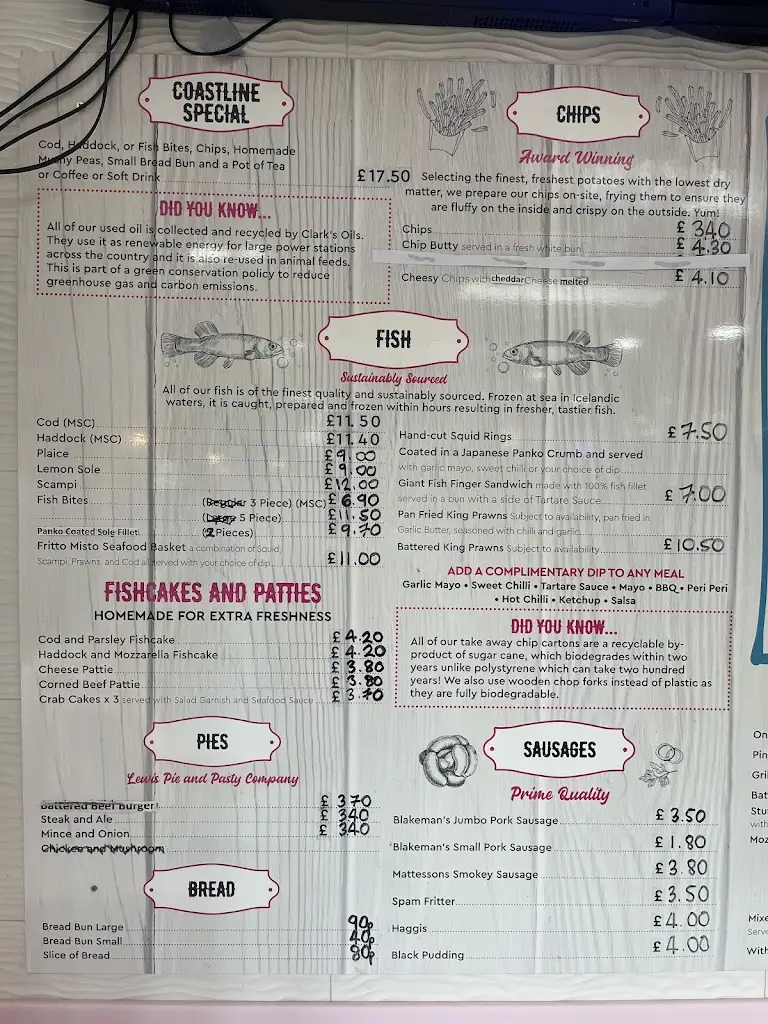 COASTLINE
SPECIAL
Cod, Haddock, or Fish Bites, Chips, Homemade
Mushy Peas, Small Bread Bun and a Pot of Tea
or Coffee or Soft Drink £17.50
DID YOU KNOW...
All of our used oil is collected and recycled by Clark's Oils.
They use it as renewable energy for large power stations
across the country and it is also re-used in animal feeds.
This is part of a green conservation policy to reduce
greenhouse gas and carbon emissions.
CHIPS
Award Winning
Selecting the finest, freshest potatoes with the lowest dry
matter, we prepare our chips on-site, frying them to ensure they
are fluffy on the inside and crispy on the outside. Yum!
Chips £ 340
Chip Butty served in a fresh white bun £ 4.30
Cheesy Chips with cheddar Cheese melted £ 4.10
FISH
Sustainably Sourced
All of our fish is of the finest quality and sustainably sourced. Frozen at sea in Icelandic
waters, it is caught, prepared and frozen within hours resulting in fresher, tastier fish.
Cod (MSC) £11.50
Haddock (MSC) £11.40
Plaice £9.00
Lemon Sole £9.00
Scampi £12.00
Fish Bites (Regular 3 Piece) (MSC) £6.90
(Large 5 Piece) £11.50
Panko Coated Sole Fillet (2 Pieces) £9.70
Fritto Misto Seafood Basket a combination of Squid,
Scampi, Prawns, and Cod all served with your choice of dip £11.00
Hand-cut Squid Rings £7.50
Coated in a Japanese Panko Crumb and served
with garlic mayo, sweet chilli or your choice of dip
Giant Fish Finger Sandwich made with 100% fish fillet
served in a bun with a side of Tartare Sauce £7.00
Pan Fried King Prawns Subject to availability, pan fried in
Garlic Butter, seasoned with chilli and garlic
Battered King Prawns Subject to availability £10.50
ADD A COMPLIMENTARY DIP TO ANY MEAL
Garlic Mayo • Sweet Chilli • Tartare Sauce • Mayo • BBQ • Peri Peri
• Hot Chilli • Ketchup • Salsa
FISHCAKES AND PATTIES
HOMEMADE FOR EXTRA FRESHNESS
Cod and Parsley Fishcake £4.20
Haddock and Mozzarella Fishcake £4.20
Cheese Pattie £3.80
Corned Beef Pattie £3.80
Crab Cakes x 3 served with Salad Garnish and Seafood Sauce £3.70
DID YOU KNOW...
All of our take away chip cartons are a recyclable by-
product of sugar cane, which biodegrades within two
years unlike polystyrene which can take two hundred
years! We also use wooden chop forks instead of plastic as
they are fully biodegradable.
PIES
Lewis Pie and Pasty Company
Battered Beef Burger £ 370
Steak and Ale £ 340
Mince and Onion £ 340
Chicken and Mushroom
BREAD
Bread Bun Large 90p
Bread Bun Small 40p
Slice of Bread 80p
SAUSAGES
Prime Quality
Blakeman's Jumbo Pork Sausage £ 3.50
Blakeman's Small Pork Sausage £ 1.80
Mattessons Smokey Sausage £ 3.80
Spam Fritter £ 3.50
Haggis £ 4.00
Black Pudding £ 4.00
On
Pin
Gri
Bat
Stu
with
Moz
Mixe
Serve
With